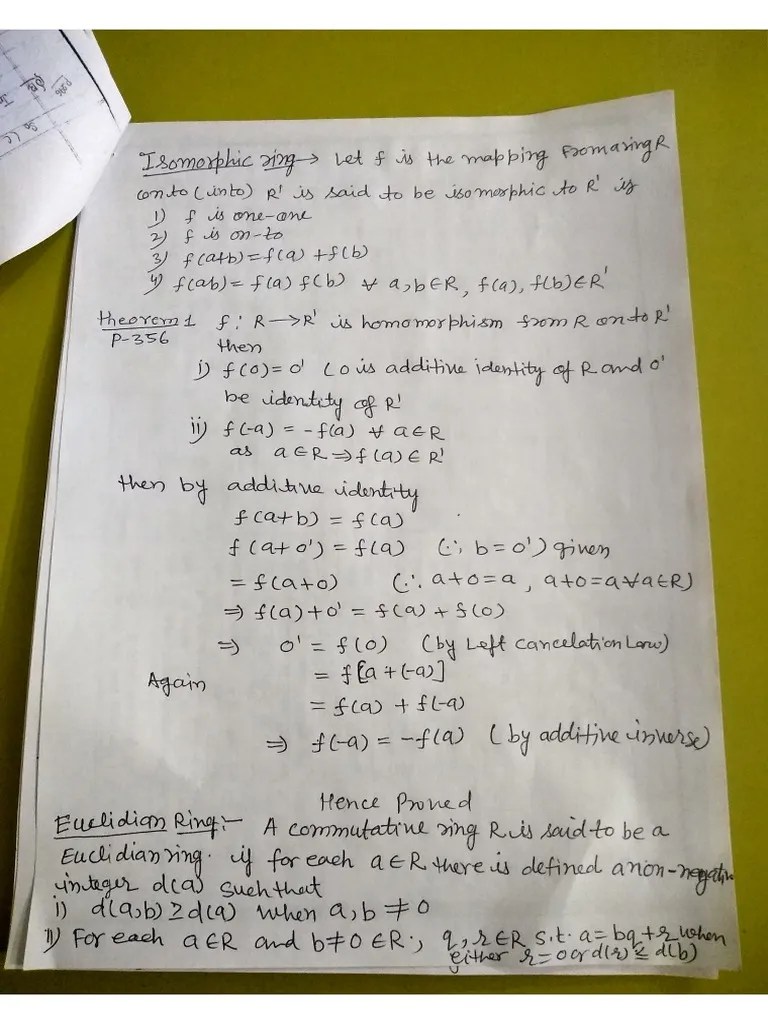 Isomorphic ring → Let f is the mapping from a ring R
onto (into) R' is said to be isomorphic to R' is
1) f is one-one
2) f is on-to
3) f(a+b) = f(a) + f(b)
4) f(ab) = f(a) f(b) ∀ a,b∈R, f(a), f(b)∈R'
Theorem 1 f: R → R' is homomorphism from R onto R'
P-356 then
i) f(0) = 0' (0 is additive identity of R and 0'
be identity of R'
ii) f(-a) = -f(a) ∀ a∈R
as a∈R ⇒ f(a)∈R'
then by additive identity
f(a+b) = f(a)
f(a+0') = f(a) (∵ b=0') given
= f(a+0) (∵ a+0=a, a+0=a ∀ a∈R)
⇒ f(a)+0' = f(a) + f(0)
⇒ 0' = f(0) (by Left cancelation Law)
Again = f[a+(-a)]
= f(a) + f(-a)
⇒ f(-a) = -f(a) (by additive inverse)
Hence Proved
Euclidian Ring:- A commutative ring R is said to be a
Euclidian ring. if for each a∈R there is defined a non-negativ
integer d(a) such that
i) d(a,b) ≥ d(a) when a,b ≠ 0
ii) For each a∈R and b≠0∈R., q,r∈R s.t. a=bq+r when
either r=0 or d(r) ≤ d(b)